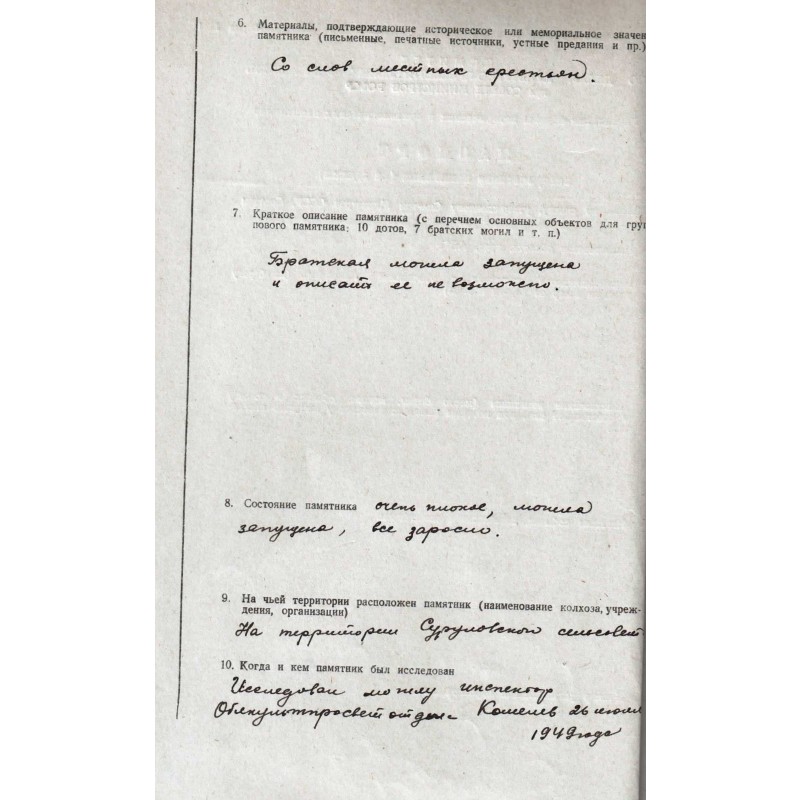 6. Материалы, подтверждающие историческое или мемориальное значен
памятника (письменные, печатные источники, устные предания и пр.)
Со слов местных крестьян.
7. Краткое описание памятника (с перечнем основных объектов для груп-
пового памятника: 10 дотов, 7 братских могил и т. п.)
Братская могила запущена
и описать ее не возможно.
8. Состояние памятника очень плохое, могила
запущена, все заросло.
9. На чьей территории расположен памятник (наименование колхоза, учреж-
дения, организации)
На территории сельсовет
10. Когда и кем памятник был исследован
Исследовал могилу инспектор
Облкультпросветотдела 26 июля
1949 года